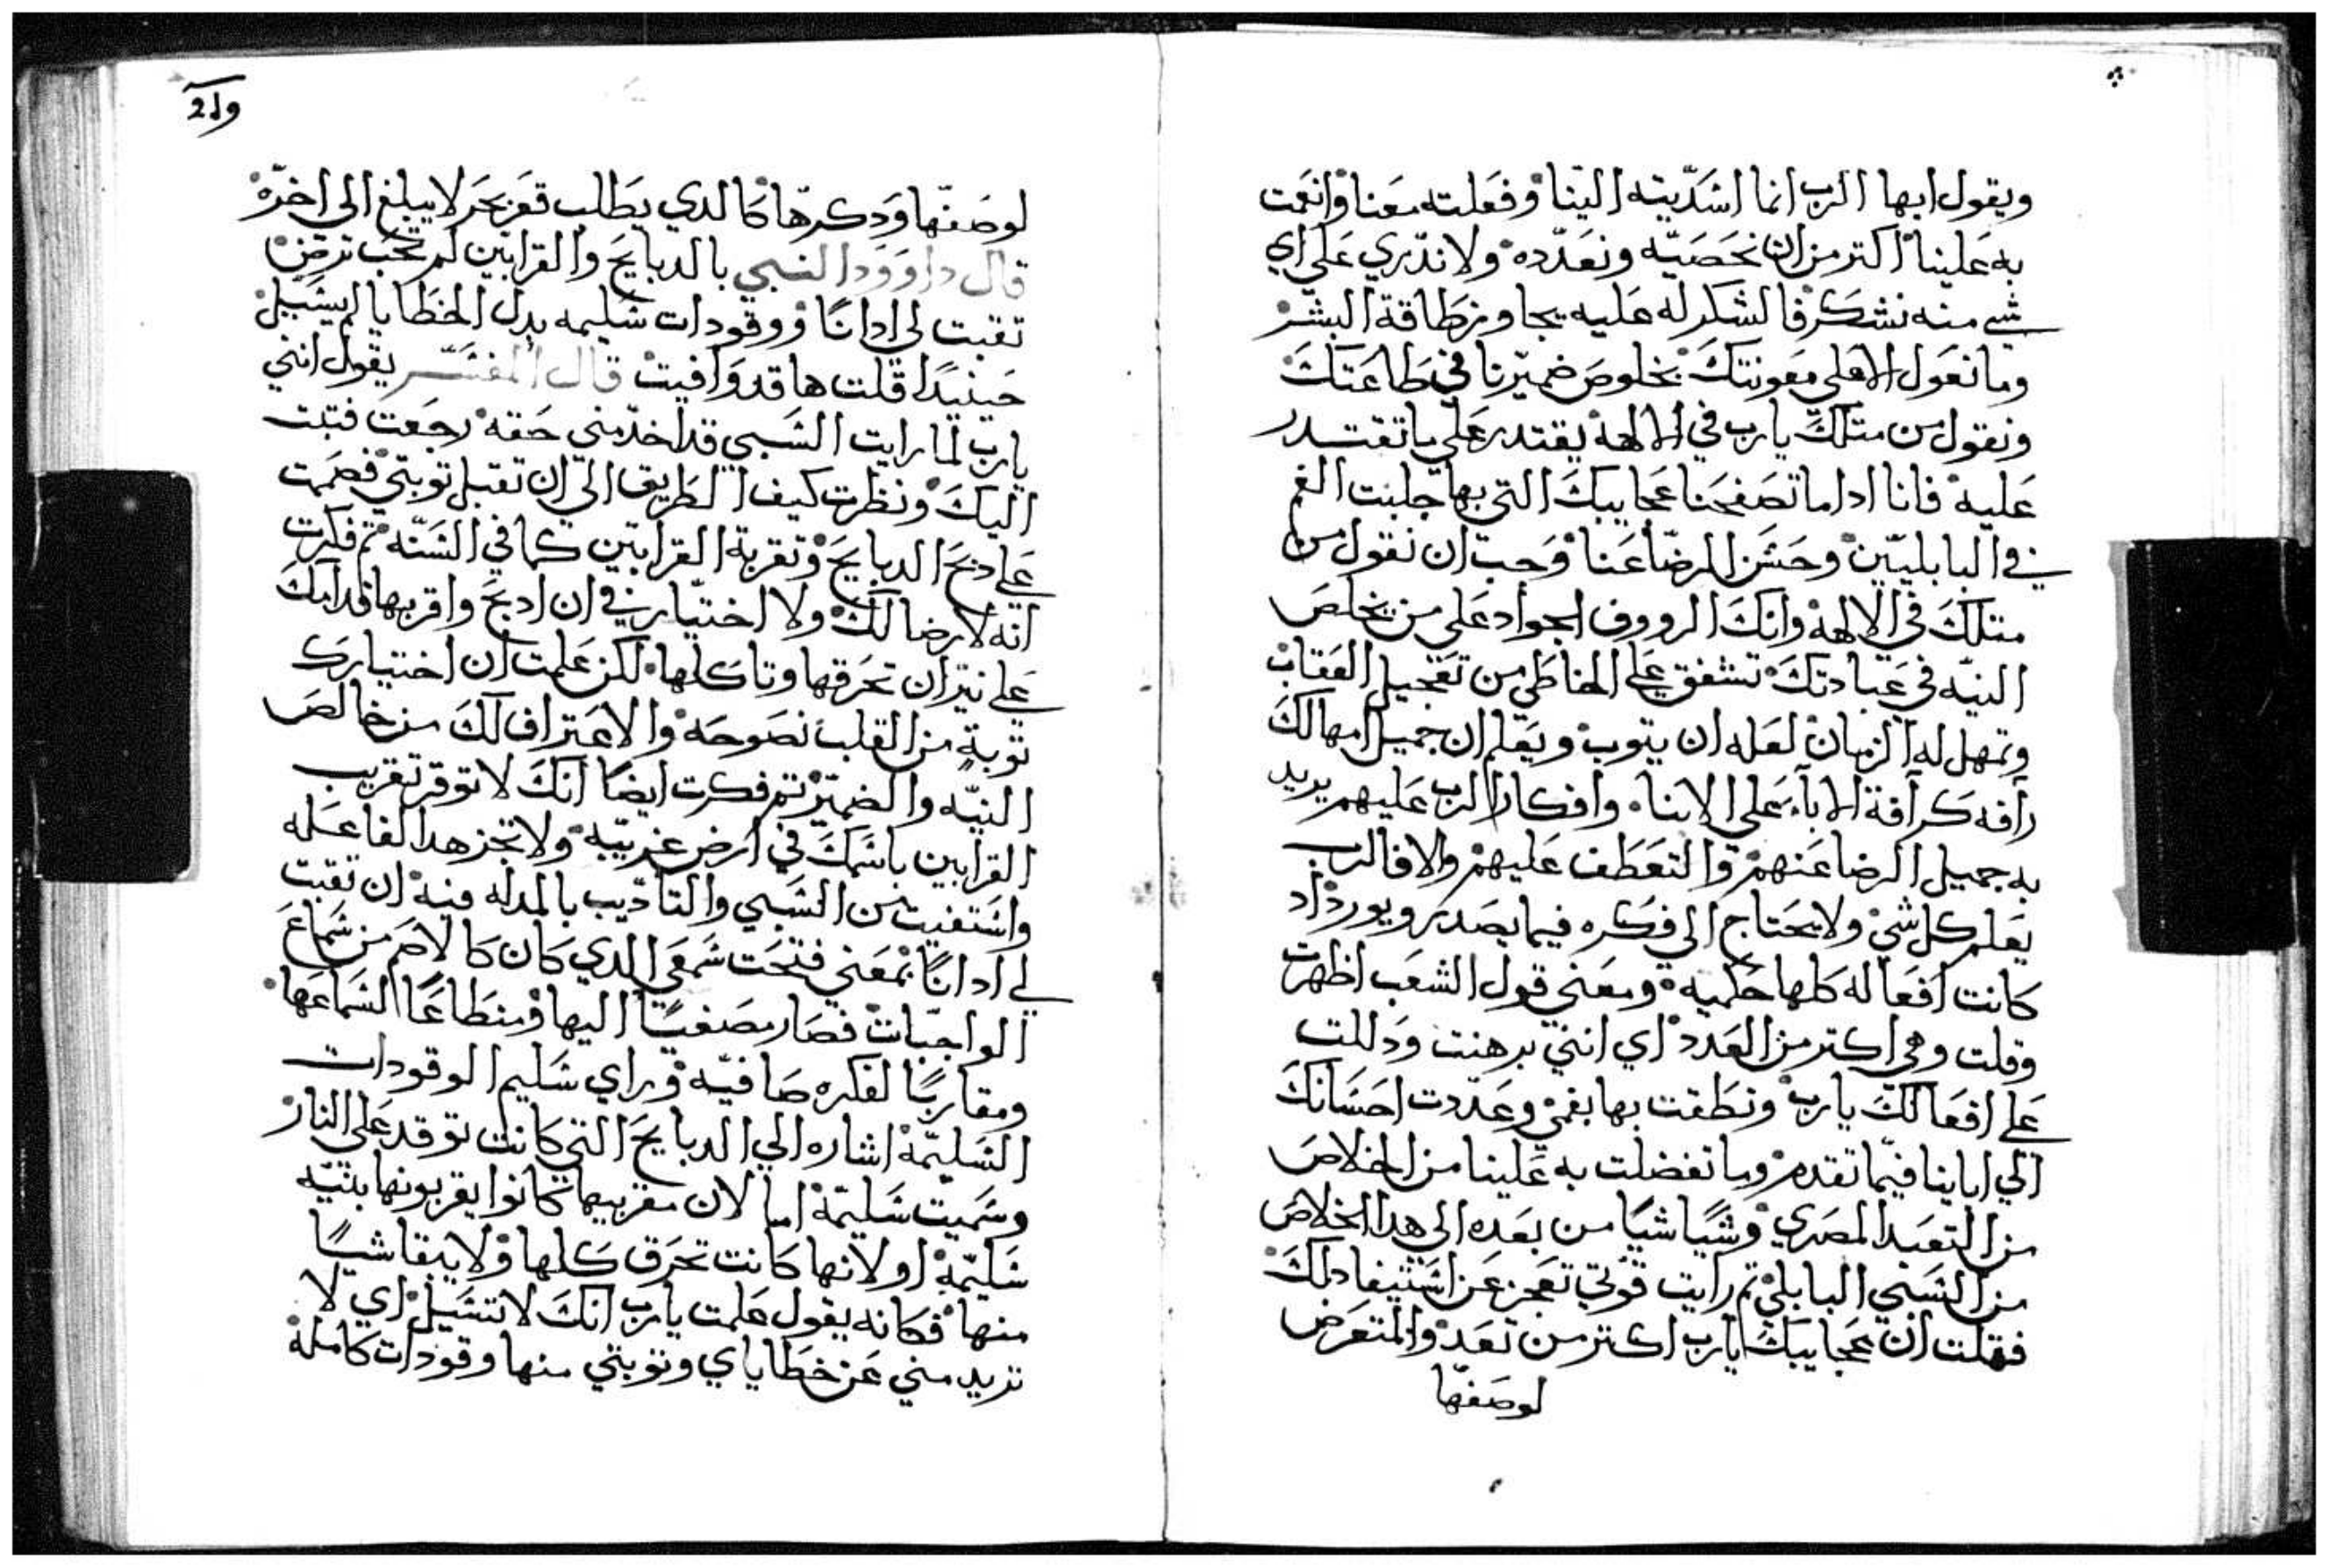 ويقول ايها الرب انما اسديته الينا وفعلته معنا وانعمت
به علينا اكتر من ان نحصيه ونعدده ولا ندري على اي
شي منه نشكر فالشكر له عليه يجاوز طاقة البشر
وما نعول الا على معونتك بخلوص ضميرنا في طاعتك
ونقول من متلك يارب في الالهة يقتدر على ما تقتدر
عليه فانا ادا ما تصفحنا عجايبك التي بها جلبت الغم
في البابليين وحسن الرضا عنا وجب ان نقول من
متلك في الالهة وانك الرووف الجواد على من يخلص
النيه في عبادتك تشفق على الخاطي من تعجيل العقاب
وتمهل له الزمان لعله ان يتوب ويعلم ان جميل امهالك
رافه كرافة الاباء على الابناء وافكار الرب عليهم يريد
به جميل الرضا عنهم والتعطف عليهم والا فالرب
يعلم كل شي ولا يحتاج الى فكره فيما يصدر ويورد اد
كانت افعاله كلها حكميه ومعنى قول الشعب اظهرت
وقلت وهي اكتر من العدد اي انني برهنت ودللت
على افعالك يارب ونطقت بها بفمي وعددت احسانك
الى اباينا فيما تقدم وما تفضلت به علينا من الخلاص
من التعبد المصري وشيا شيا من بعده الى هدا الخلاص
من السبي البابلي تم رايت قوتي تعجز عن استيفا دلك
فقلت ان عجايبك يارب اكتر من تعد والمتعرض
لوصفها
219
لوصفها ودكرها كالدي يطلب قعر بحر لا يبلغ الى اخره
قال داوود النبي بالدبايح والقرابين لم تحب ترض
تقبت لي ادانا ووقودات سليمه بدل الخطايا لم يسيل
حينيدا قلت ها قد وافيت قال المفسر يقول انني
يارب لما رايت السبي قد اخد مني حقه رجعت فتبت
اليك ونظرت كيف الطريق الى ان تقبل توبتي فصممت
على دبح الدبايح وتقربة القرابين كما في السنه تم فكرت
انه لا رضا لك ولا اختيار في ان ادبح واقربها قدامك
على نيران تحرقها وتاكلها لكن علمت ان اختيارك
توبة من القلب نصوحه والاعتراف لك من خالص
النيه والضمير تم فكرت ايضا انك لا توقر تقريب
القرابين باسمك في ارض غريبه ولا تجز هدا الفاعله
واستفيت من السبي والتاديب بالمدله فيه ان تقبت
لي ادانا بمعنى فتحت سمعي الدي كان كالاصم من سماع
الواجبات فصار مصغيا اليها ومنطاعا لسماعها
ومقاربا لفكره صافيه وراي سليم الوقودات
السليمة اشاره الى الدبايح التي كانت توقد على النار
وسميت سليمة اما لان مقربيها كانوا يقربونها بنيه
سليمة او لانها كانت تحرق كلها ولا يبقا شيا
منها فكانه يقول علمت يارب انك لا تتسيل اي لا
تريد مني عن خطاياي وتوبتي منها وقودات كاملة